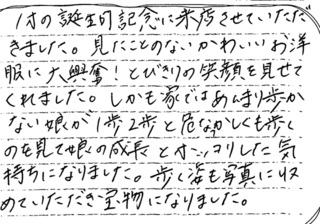 1才の誕生日記念に来店させていただ
きました。見たことのないかわいいお洋
服に大興奮！とびきりの笑顔を見せて
くれました。しかも家ではあんまり歩か
ない娘が1歩2歩と危なかしくも歩く
のを見て娘の成長とホッコリした気
持ちになりました。歩く姿も写真に収
めていただき宝物になりました。